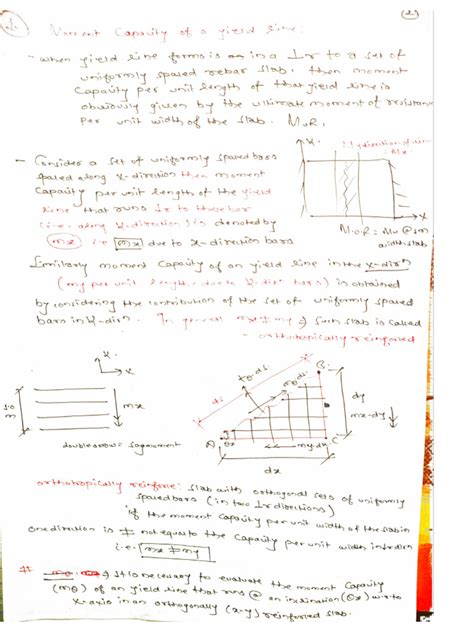 (2)
Moment Capacity of a yield line:
- when yield line forms is in a ⊥r to a set of
uniformly spaced rebar slab. then moment
Capacity per unit length of that yield line is
obviously given by the ultimate moment of resistance
Per unit width of the slab. MuR,
- Consider a set of uniformly spaced bars
spaced along x-direction then moment
Capacity per unit length of the yield
line that runs ⊥r to these bar
(i.e. along y-direction) is denoted by
mx i.e mx due to x-direction bars
M.O.R = Mu @ 1m
width slab
Similarly moment Capacity of an yield line in the x-dirn
(my per unit length, due to y-dirn bars) is obtained
by considering the contribution of the set of uniformly spaced
bars in y-dirn. In general mx ≠ my → Such slab is called
- orthotropically reinforced
y
x
1.0
m
mx
double arrow = sag moment
ds
B
dy
mx.dy
A
θx
my.dx
C
dx
orthotropically reinforce: slab with orthogonal sets of uniformly
spaced bars (in two ⊥r directions)
if the moment Capacity per unit width of the slab in
one direction is ≠ not equal to the Capacity per unit width in ⊥r dirn
i.e. mx ≠ my
# It is necessary to evaluate the moment Capacity
(mθ) of an yield line that runs @ an inclination (θx) w.r.to
x-axis in an orthogonally (x-y) reinforced slab.